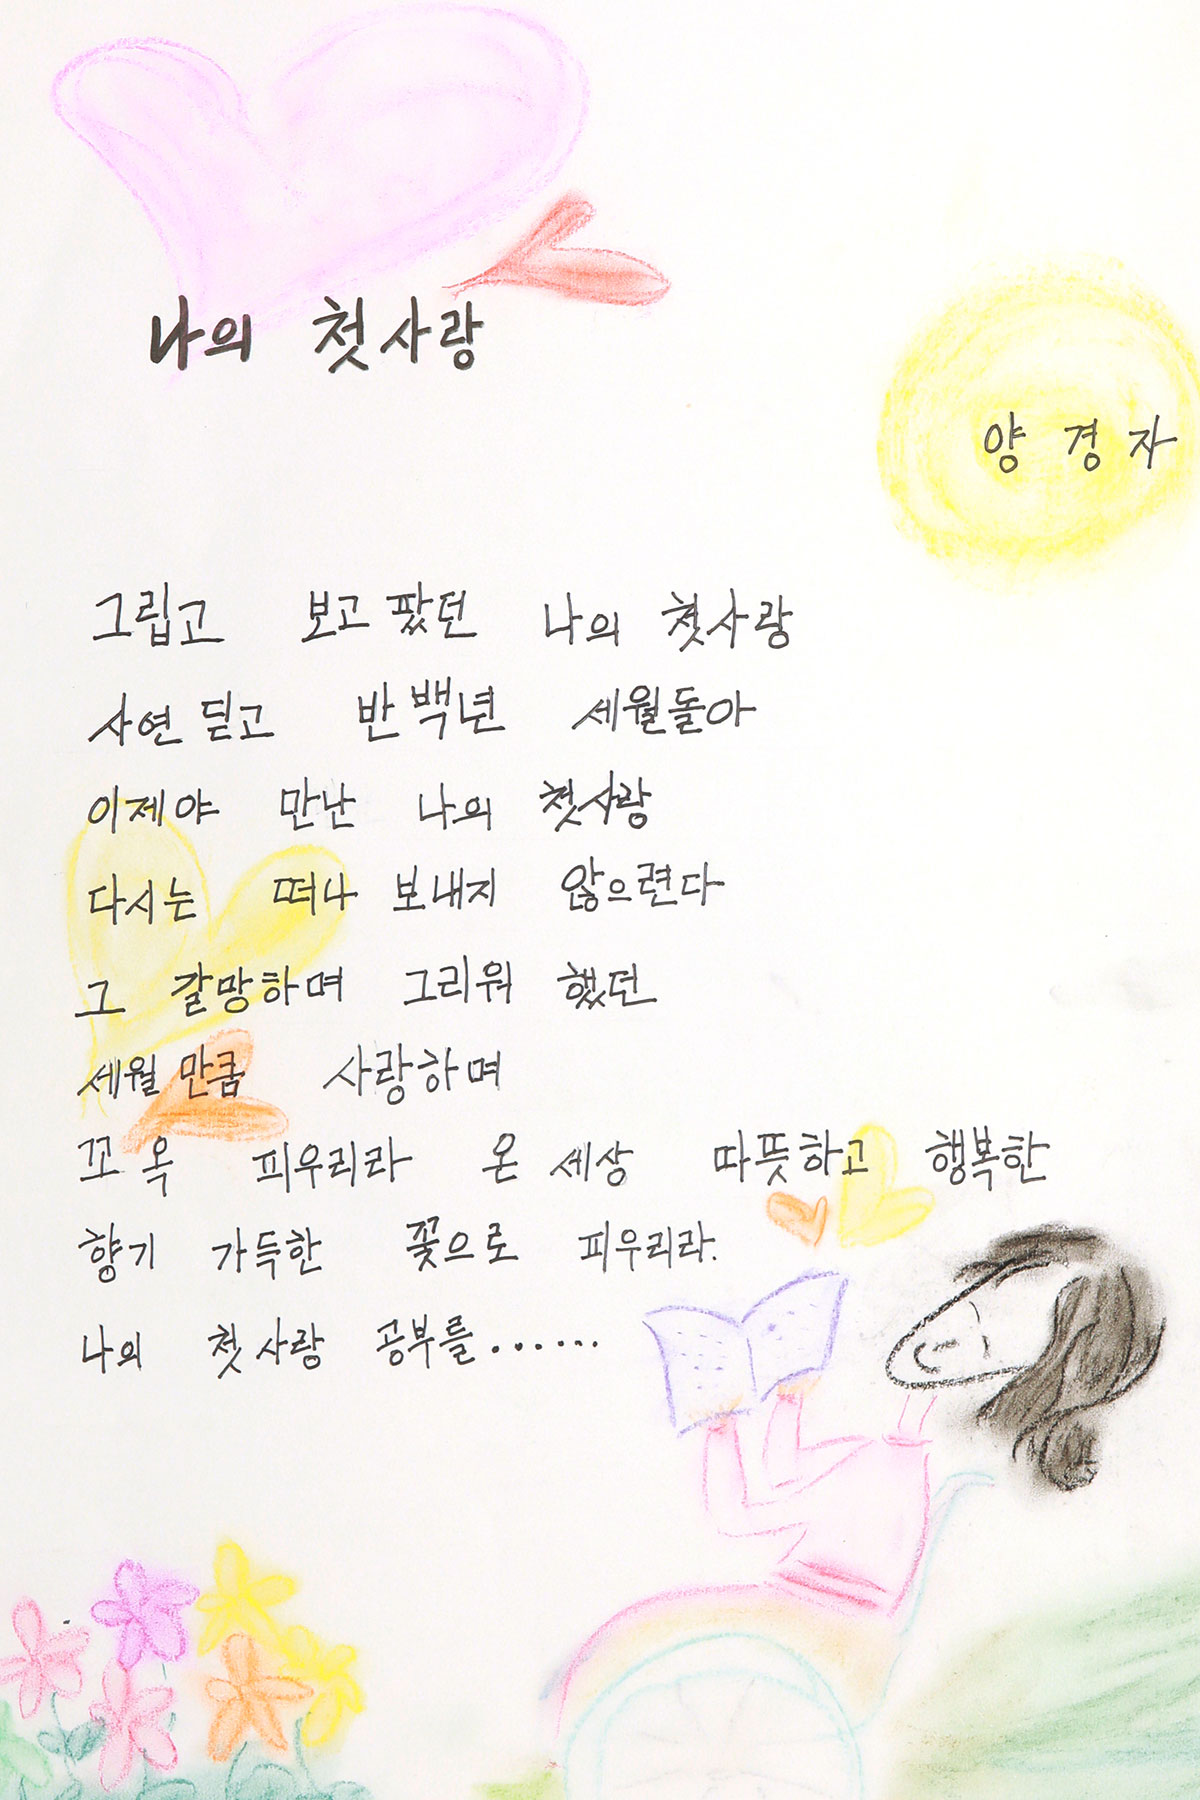 나의 첫사랑
양 경 자
그립고 보고팠던 나의 첫사랑
사연 딛고 반백년 세월돌아
이제야 만난 나의 첫사랑
다시는 떠나 보내지 않으련다
그 갈망하며 그리워 했던
세월 만큼 사랑하며
꼬옥 피우리라 온 세상 따뜻하고 행복한
향기 가득한 꽃으로 피우리라.
나의 첫사랑 공부를......